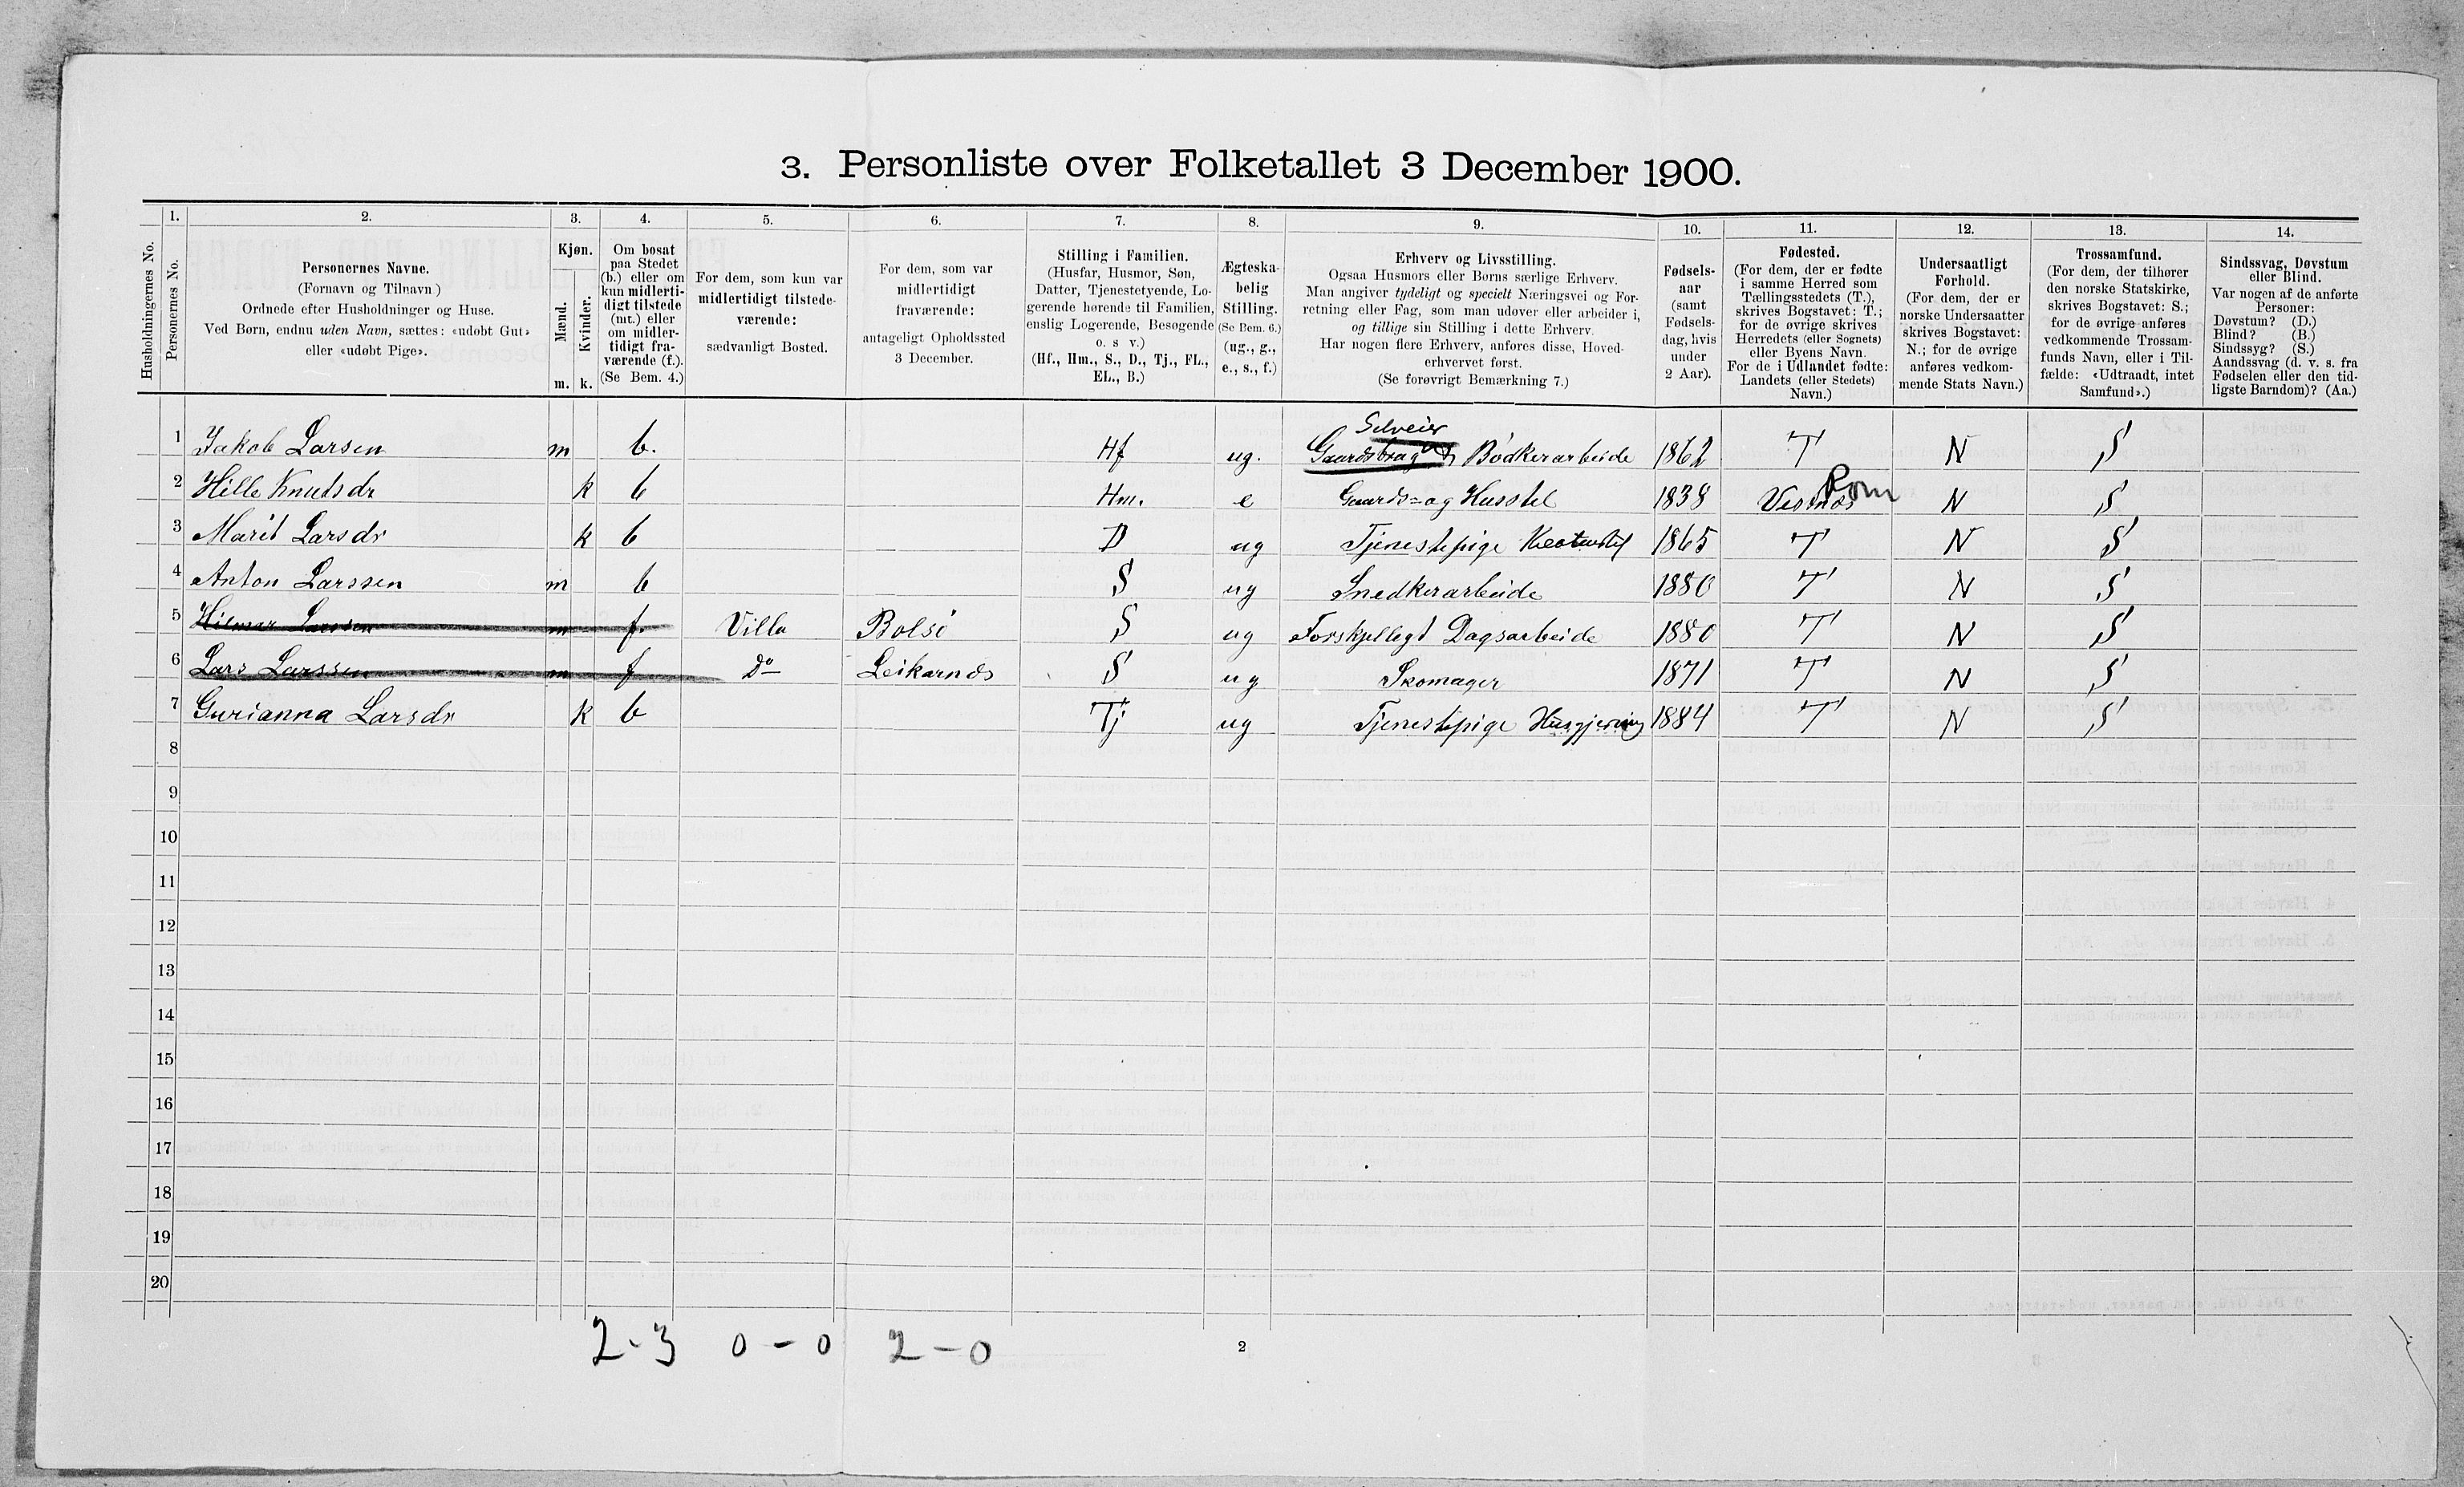 3. Personliste over Folketallet 3 December 1900.
1. 2. 3. 4. 5. 6. 7. 8. 9. 10. 11. 12. 13. 14.
Husholdningernes No.
Personernes No.
Personernes Navne.
(Fornavn og Tilnavn)
Ordnede efter Husholdninger og Huse.
Ved Børn, endnu uden Navn, sættes: «udobt Gut»
eller «udøbt Pige».
Kjøn.
Mænd.
Kvinder.
m. k.
Om bosat
paa Stedet
(b.) eller om
kun midlerti-
digt tilstede
(mt.) eller
om midler-
tidigt fra-
værende (f.).
(Se Bem. 4.)
For dem, som kun var
midlertidigt tilstede-
værende:
sædvanligt Bosted.
For dem, som var
midlertidigt
fraværende:
antageligt Opholdssted
3 December.
Stilling i Familien.
(Husfar, Husmor, Søn,
Datter, Tjenestetyende, Lo-
gerende hørende til Familien,
enslig Logerende, Besøgende
o. s v.)
(Hf., Hm., S., D., Tj., FL.,
EL., B.)
Ægteska-
belig
Stilling.
(Se Bem. 6.)
(ug., g.,
e., s., f.)
Erhverv og Livsstilling.
Ogsaa Husmors eller Børns særlige Erhverv.
Man angiver tydeligt og specielt Næringsvei og For-
retning eller Fag, som man udøver eller arbeider i,
og tillige sin Stilling i dette Erhverv.
Har nogen flere Erhverv, anføres disse, Hoved-
erhvervet først.
(Se forøvrigt Bemærkning 7.)
Fødsels-
aar
(samt
Fødsels-
dag, hvis
under
2 Aar).
Fødested.
(For dem, der er fødte
i samme Herred som
Tællingsstedets (T.),
skrives Bogstavet: T.;
for de øvrige skrives
Herredets (eller Sognets)
eller Byens Navn.
For de i Udlandet fødte:
Landets (eller Stedets)
Navn.)
Undersaatligt
Forhold.
(For dem, der er
norske Undersaatter
skrives Bogstavet:
N.; for de øvrige
anføres vedkom-
mende Stats Navn.)
Trossamfund.
(For dem, der tilhører
den norske Statskirke,
skrives Bogstavet: S.;
for de øvrige anføres
vedkommende Trossam-
funds Navn, eller i Til-
fælde: «Udtraadt, intet
Samfund».)
Sindssvag, Døvstum
eller Blind.
Var nogen af de anførte
Personer:
Døvstum? (D.)
Blind? (B.)
Sindssyg? (S.)
Aandssvag (d. v. s. fra
Fødselen eller den tid-
ligste Barndom)? (Aa.)
Selveier
1 Jakob Larsen m b. Hf ug. Gaardsbrug Bødkerarbeide 1862 T N S
2 Hille Knutsdr k b Hm. e Gaards- og Husstel 1838 Vestnæs Rom N S
3 Marit Larsdr k b D ug Tjenestepige 1865 T N S
4 Anton Larssen m b S ug Snedkerarbeide 1880 T N S
5 Hilmar Larssen m f. Villa Bolsö S ug Forskjelligt Dagsarbeide 1880 T N S
6 Lars Larssen m f Do Leikarnæs S ug Skomager 1871 T N S
7 Gurianna Larsdr k b Tj ug Tjenestepige Husgjerning 1884 T N S
8
9
10
11
12
13
14
15
16
17
18
19
20
2-3 0-0 2-0
2